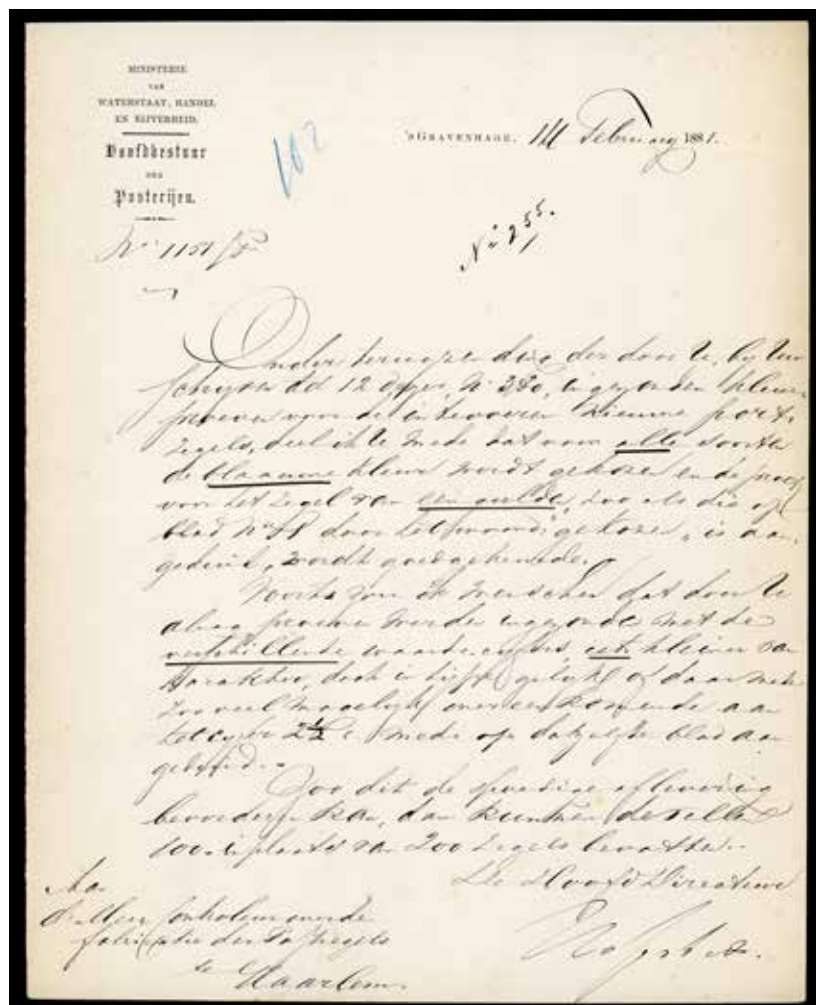 MINISTERIE
VAN
WATERSTAAT, HANDEL
EN NIJVERHEID.
Hoofdbestuur
DER
Posterijen.
102
'SGRAVENHAGE, 14 Februarij 1881.
No 1151
No 255.
Onder terugzending der door U, bij Uw
schrijven dd 12 dezer, No 380, ingezonden kleur
proeven voor de in te voeren nieuwe port,
zegels, deel ik U mede dat voor alle soorten
de blaauwe kleur wordt gekozen en de proef
voor het zegel van een gulden, zoo als die op
blad No door het woord "gekozen" is aan,
geduid, wordt goedgekeurd.
Voorts zou ik wenschen dat door U
alsnog proeven werden ingezonden met de
verschillende waardecijfers, iets kleiner van
karakter, doch in type gelijk of daarmede
zooveel mogelijk overeenkomende aan
het cijfer 2½ c mede op datzelfde blad aan
Zoo dit de spoedige aflevering
bevorderen kan, dan kunnen de vellen
100 in plaats van 200 zegels bevatten.
De Hoofd Directeur
Aan
den Heer Controleur over de
fabricatie der Postzegels
te
Haarlem.
Hofstede.